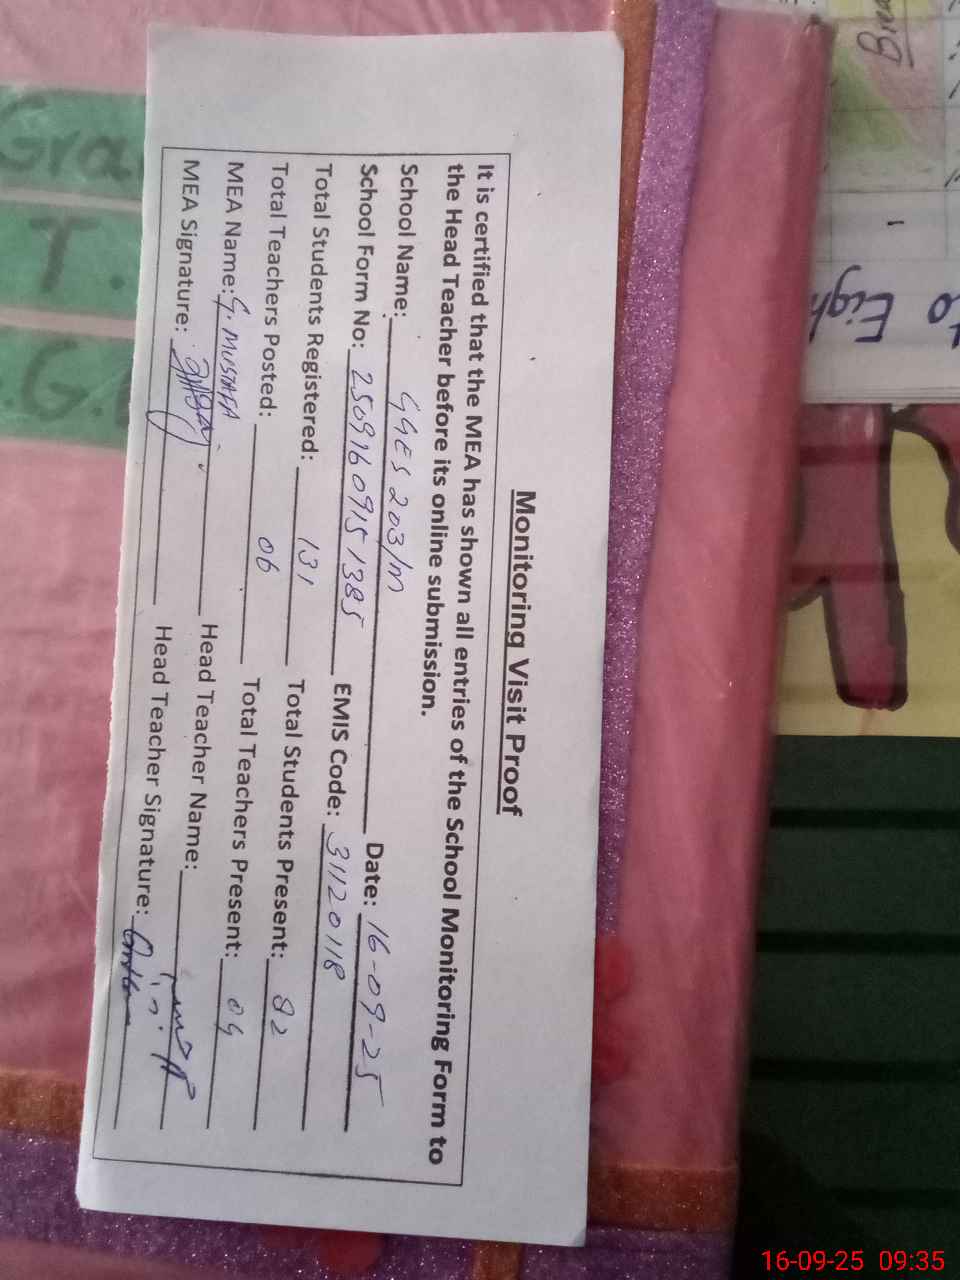 Monitoring Visit Proof
It is certified that the MEA has shown all entries of the School Monitoring Form to
the Head Teacher before its online submission.
School Name: GGES 203/M Date: 16-09-25
School Form No: 25091609151385 EMIS Code: 31120118
Total Students Registered: 131 Total Students Present: 82
Total Teachers Posted: 06 Total Teachers Present: 04
MEA Name: G. MUSTAFA Head Teacher Name:
MEA Signature: Head Teacher Signature:
Gra
T.
.G.
to Eigh
16-09-25 09:35